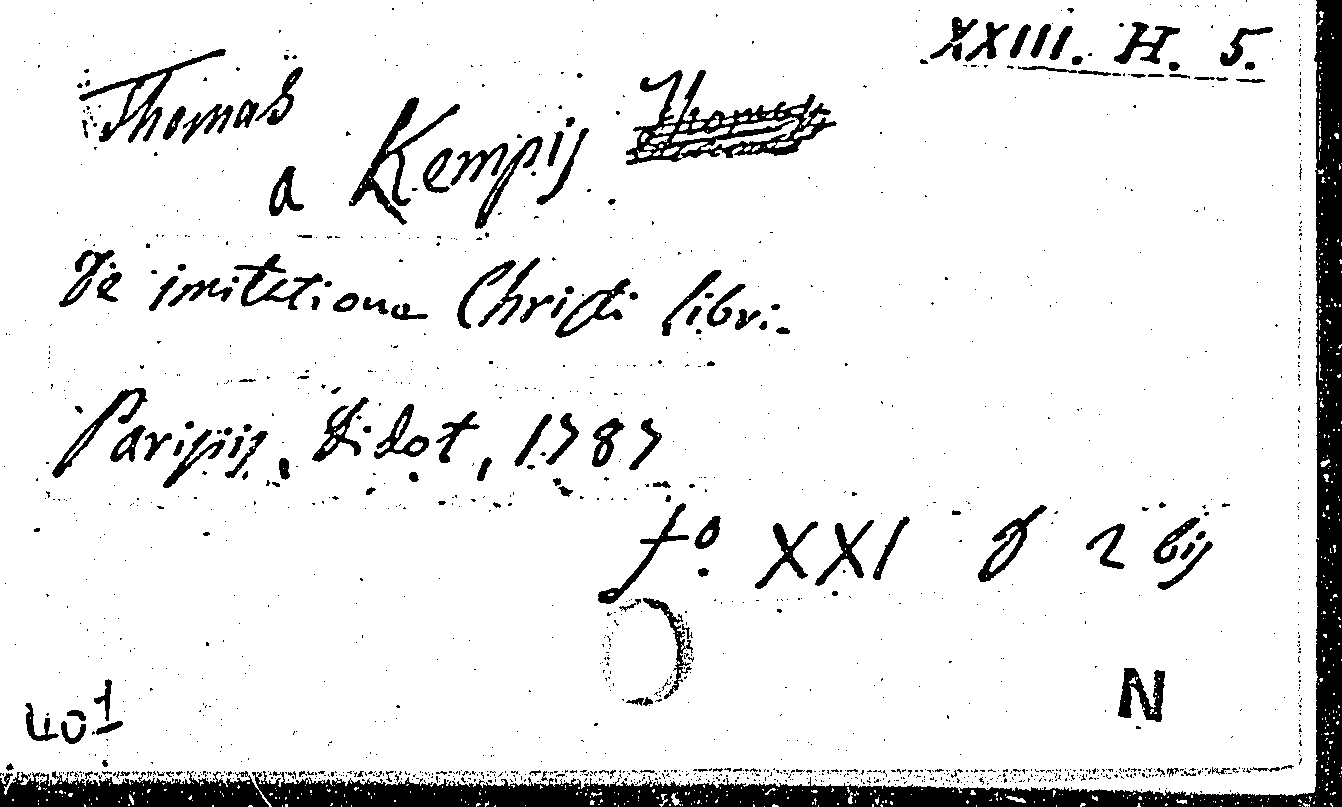 XXIII. H. 5.
Thomas
a Kempis.
De imitatione Christi libri.
Parisiis, Didot, 1787
fo. XXI 2 bis
N
401